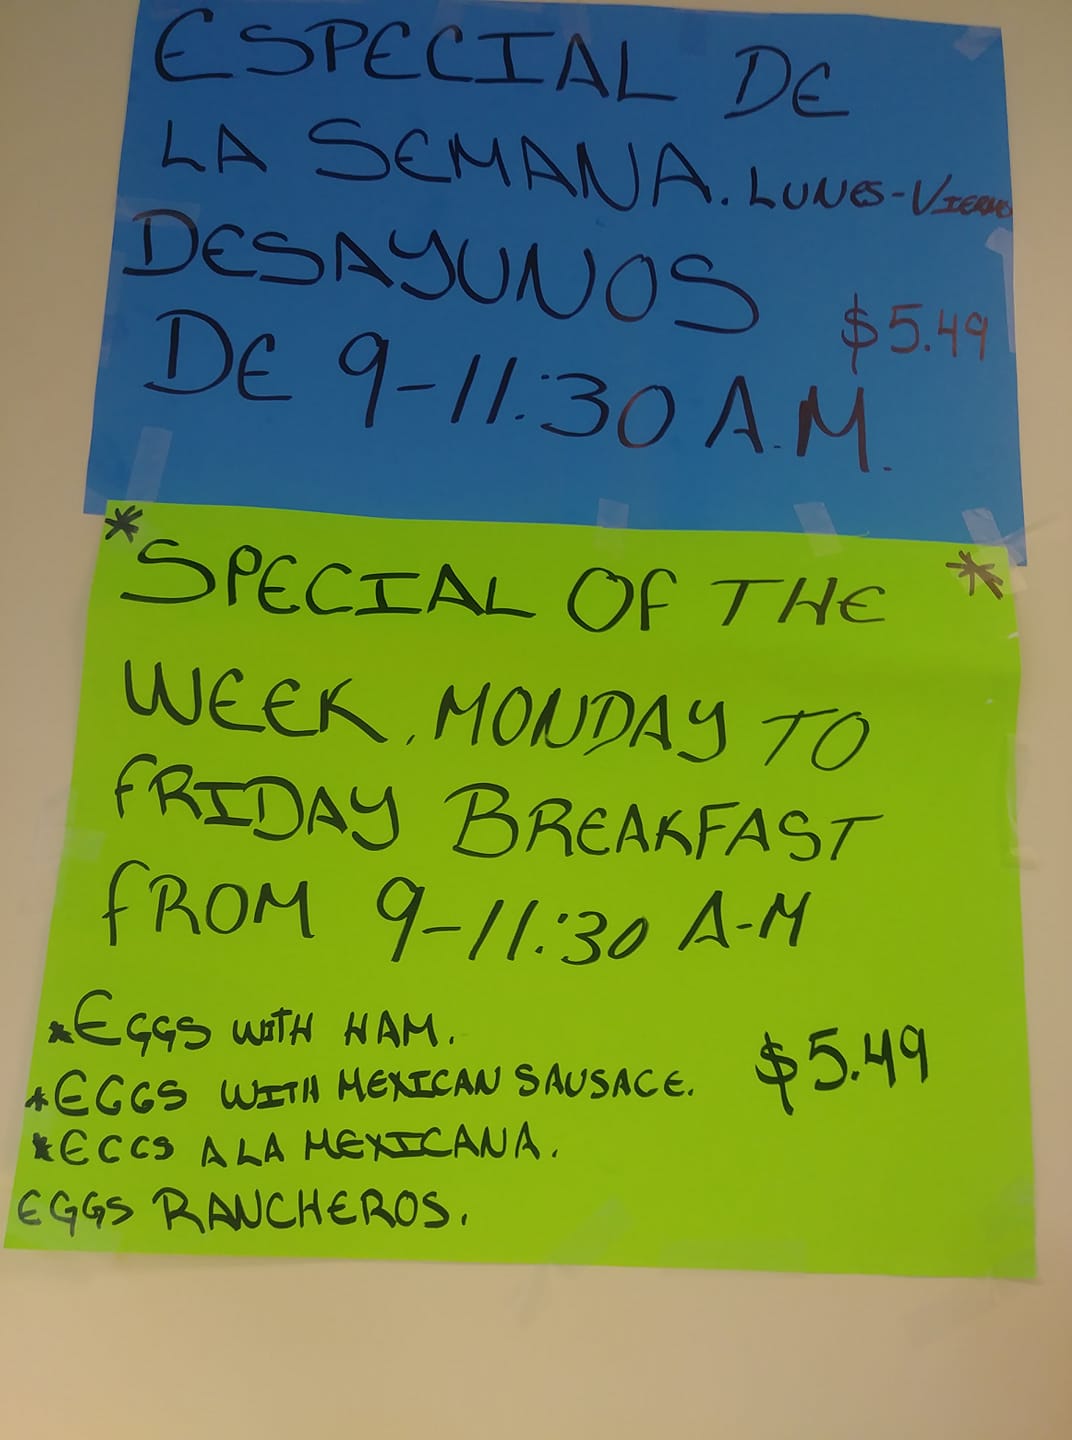 ESPECIAL DE
LA SEMANA. LUNES-VIERNES
DESAYUNOS
$5.49
DE 9-11:30 A.M.
*SPECIAL OF THE *
WEEK, MONDAY TO
FRIDAY BREAKFAST
FROM 9-11:30 A-M
*EGGS WITH HAM.
$5.49
*EGGS WITH MEXICAN SAUSAGE.
*EGGS A LA MEXICANA.
EGGS RANCHEROS.